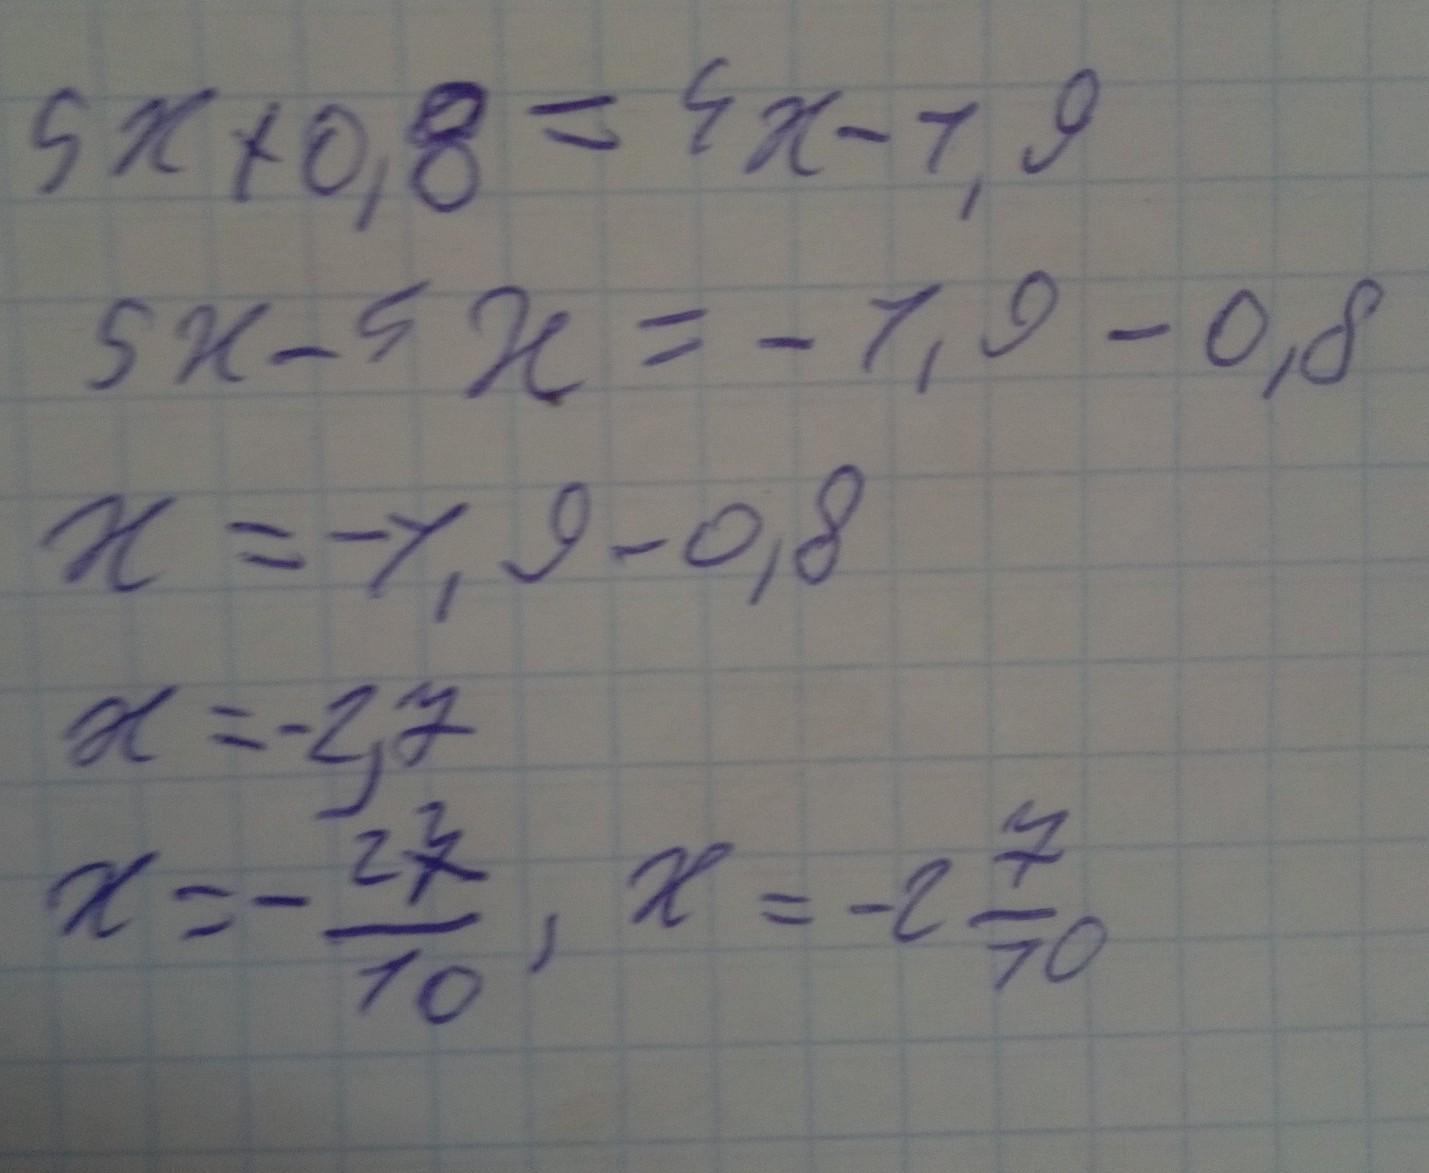 5x+0,8=4x-1,9
5x-4x=-1,9-0,8
x=-1,9-0,8
x=-2,7
x=-27/10, x=-2 7/10